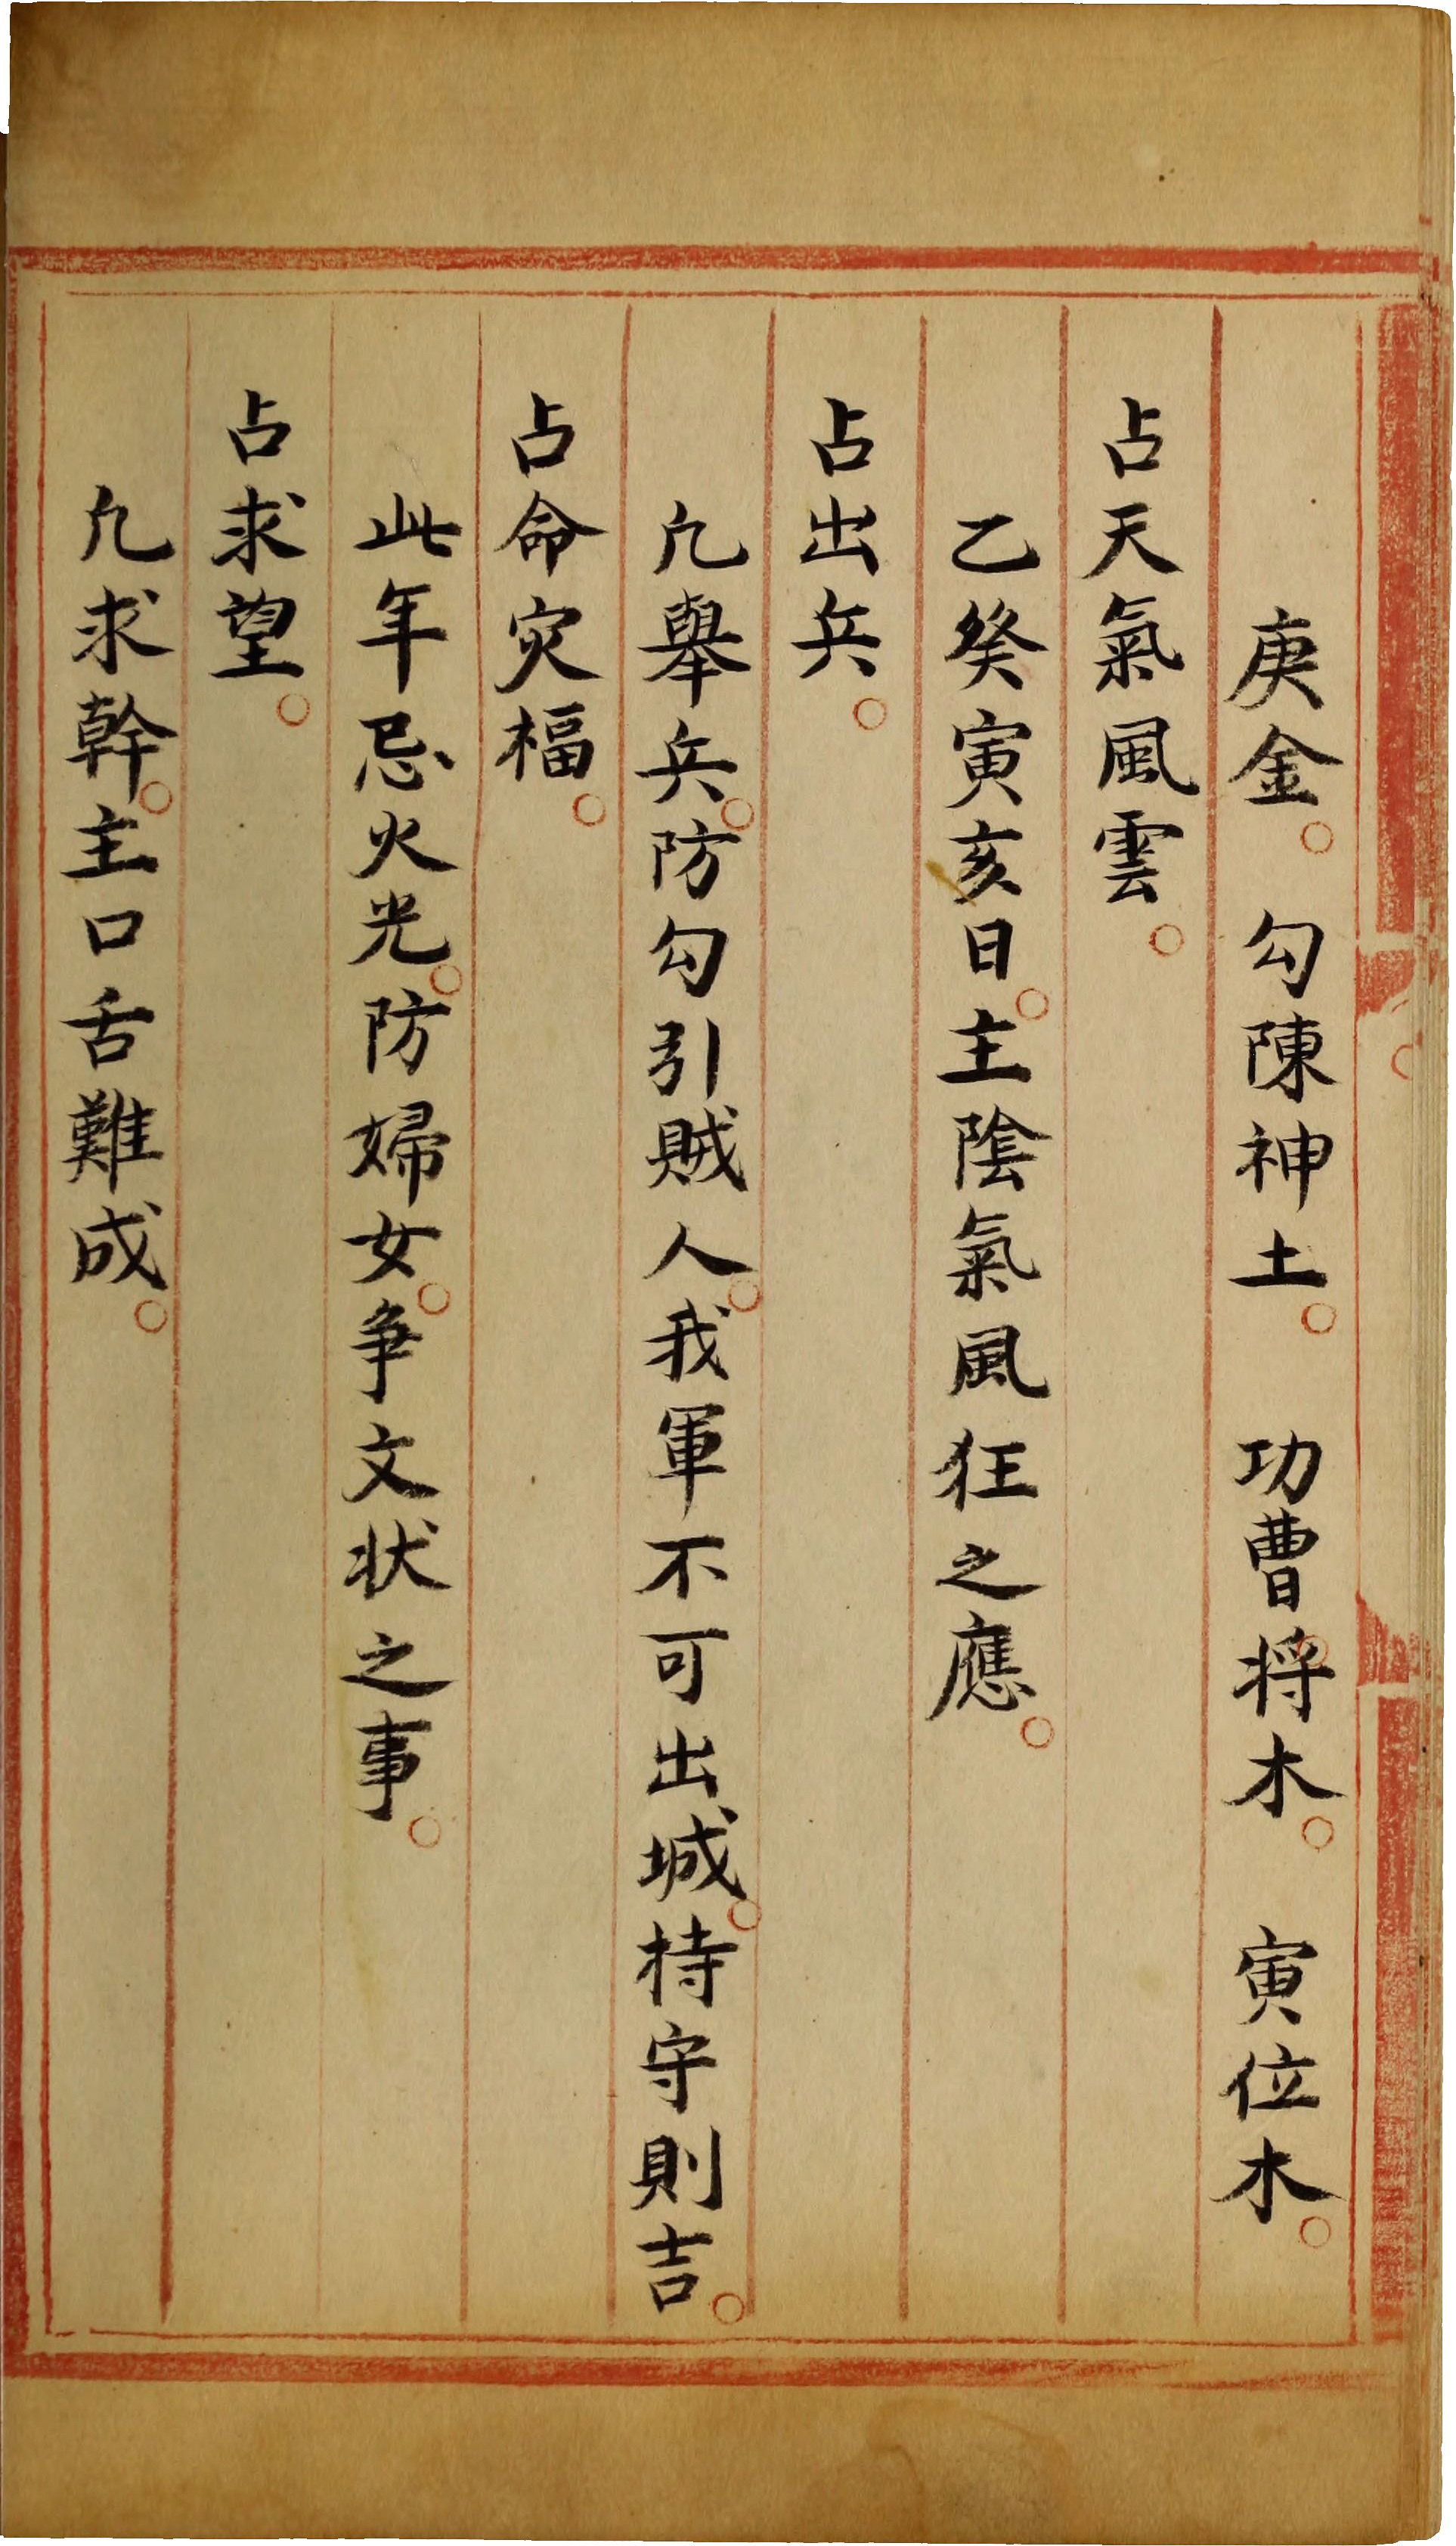 庚金。勾陳神土。功曹将木。寅位木。
占天氣風雲。
乙癸寅亥日。主陰氣風狂之應。
占出兵。
凢舉兵。防勾引賊人。我軍不可出城。持守則吉。
占命灾福。
此年忌火光。防婦女。争文状之事。
占求望。
凢求幹。主口舌難成。